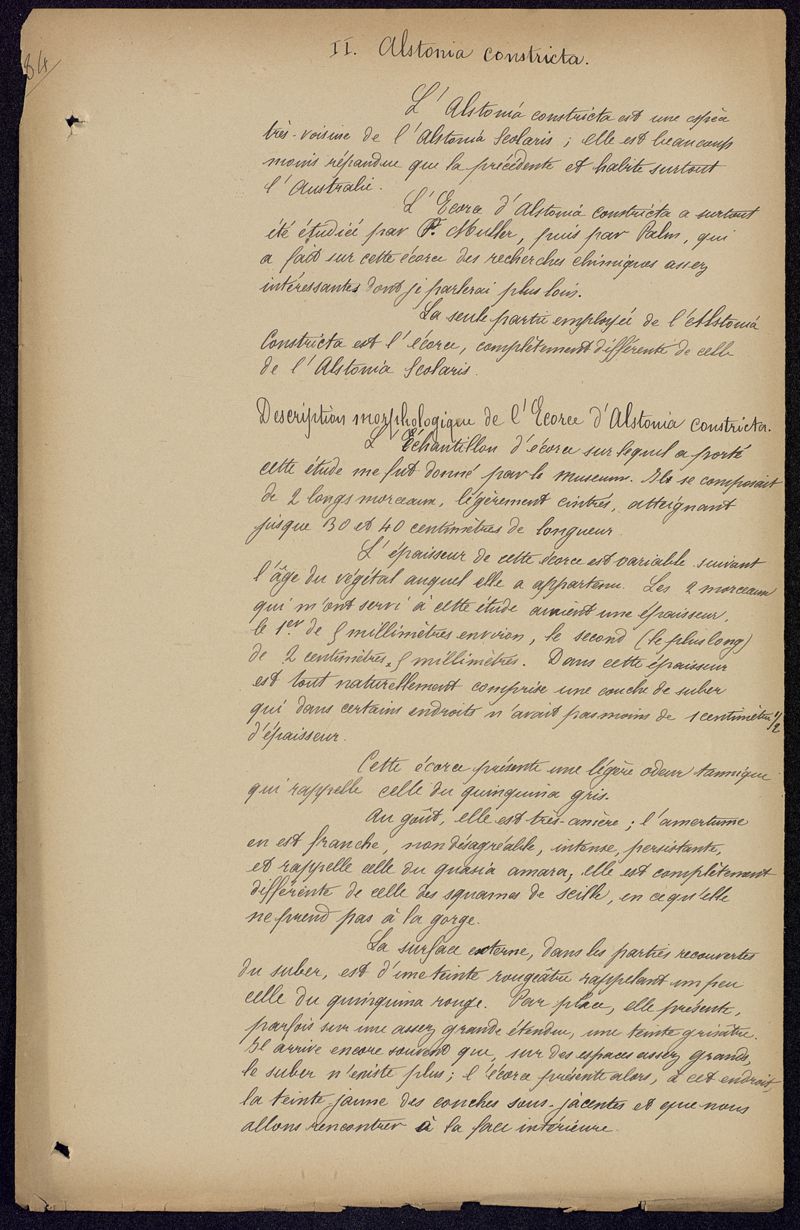 84
II. Alstonia constricta.
L'Alstonia constricta est une espèce
très-voisine de l'Alstonia Scolaris ; elle est beaucoup
moins répandue que la précédente et habite surtout
l'Australie.
L'Ecorce d'Alstonia constricta a surtout
été étudiée par F. Muller, puis par Palm, qui
a fait sur cette écorce des recherches chimiques assez
intéressantes dont je parlerai plus loin.
La seule partie employée de l'Alstonia
Constricta est l'écorce, complètement différente de celle
de l'Alstonia Scolaris.
Description morphologique de l'Ecorce d'Alstonia constricta.
L'Échantillon d'écorce sur lequel a porté
cette étude me fut donné par le museum. Il se composait
de 2 longs morceaux, légèrement cintrés, atteignant
jusque 30 et 40 centimètres de longueur.
L'épaisseur de cette écorce est variable suivant
l'âge du végétal auquel elle a appartenu. Les 2 morceaux
qui m'ont servi à cette étude avaient une épaisseur,
le 1er de 5 millimètres environ, le second (le plus long)
de 2 centimètres 5 millimètres. Dans cette épaisseur
est tout naturellement comprise une couche de suber
qui dans certains endroits n'avait pas moins de 1 centimètre 1/2
d'épaisseur.
Cette écorce présente une légère odeur tannique
qui rappelle celle du quinquina gris.
Au goût, elle est très-amère ; l'amertume
en est franche, non désagréable, intense, persistante,
et rappelle celle du quasia amara ; elle est complètement
différente de celle des squames de Scille, en ce qu'elle
ne prend pas à la gorge.
La surface externe, dans les parties recouvertes
du suber, est d'une teinte rougeâtre rappelant un peu
celle du quinquina rouge. Par place, elle présente,
parfois sur une assez grande étendue, une teinte grisâtre.
Il arrive encore souvent que, sur des espaces assez grands,
le suber n'existe plus ; l'écorce présente alors, à cet endroit,
la teinte jaune des couches sous-jacentes et que nous
allons rencontrer à la face intérieure.